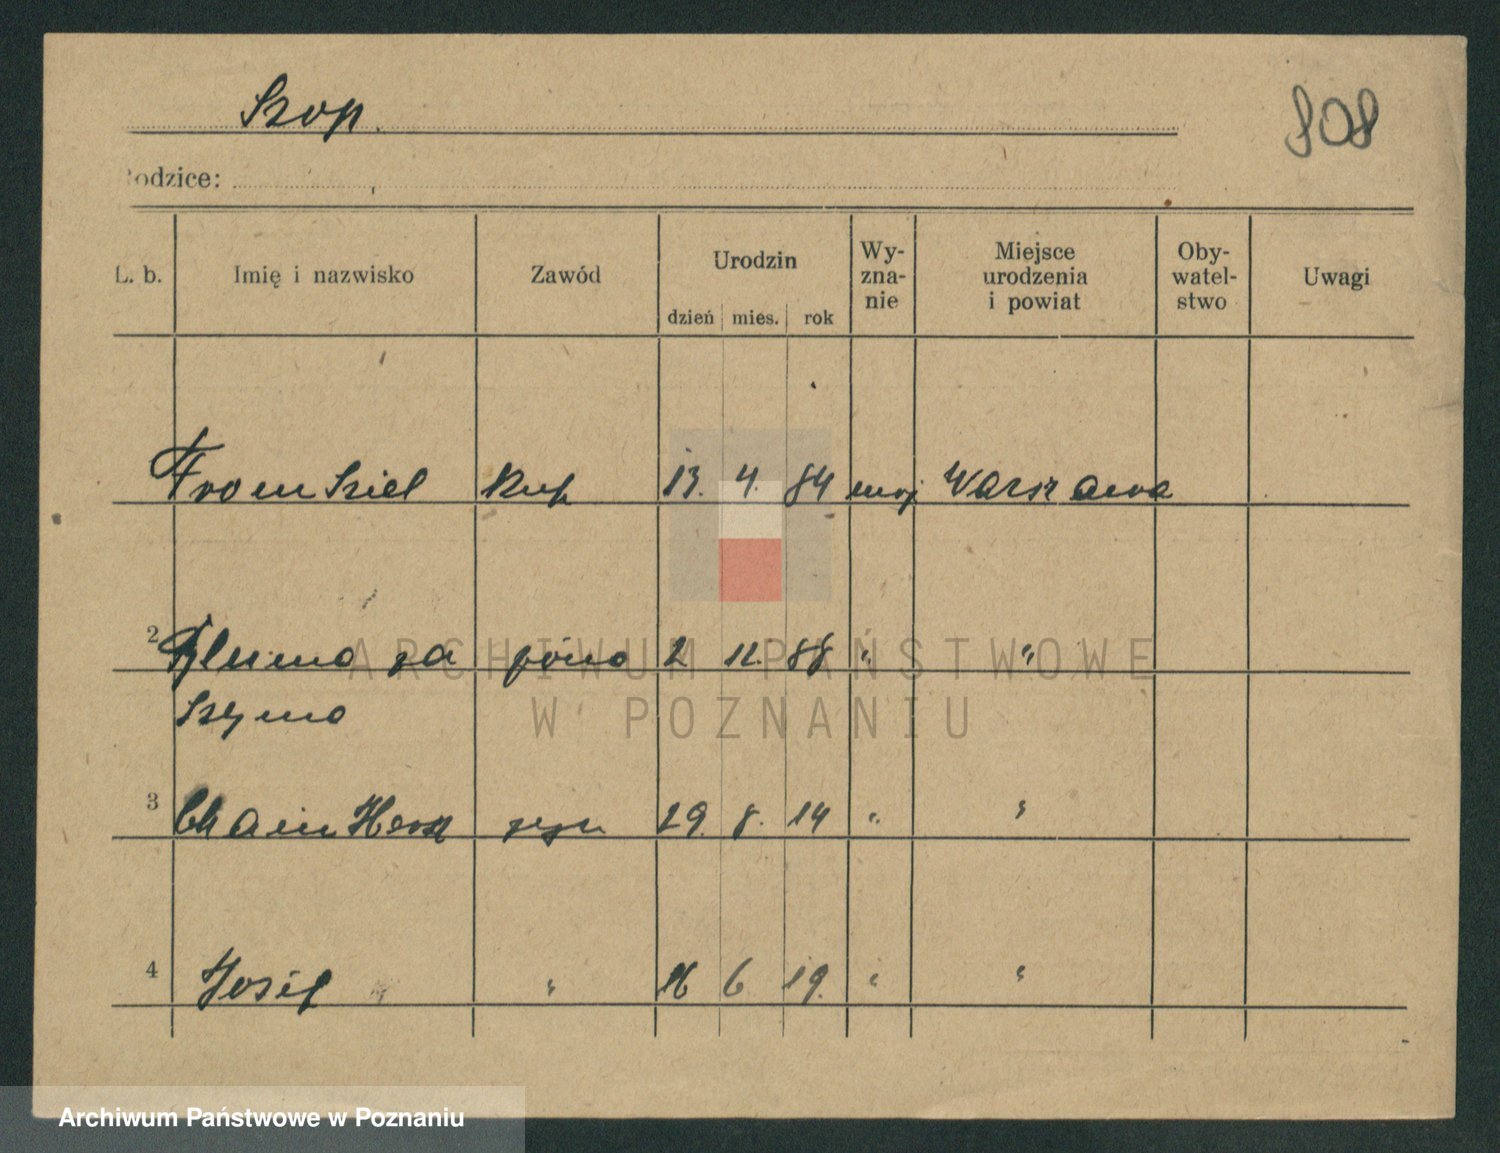 Szop.
808
Rodzice:
L. b. Imię i nazwisko Zawód Urodzin dzień mies. rok Wy-zna-nie Miejsce urodzenia i powiat Oby-watel-stwo Uwagi
From Sziel Kup 13. 4. 84 moj Warszawa
2 Bluma za 2 12. 88 " "
Szyma
3 Chaim Hersz 29. 8. 14 " "
4 Josif " 16 6 19. " "
ARCHIWUM PAŃSTWOWE
W POZNANIU
Archiwum Państwowe w Poznaniu